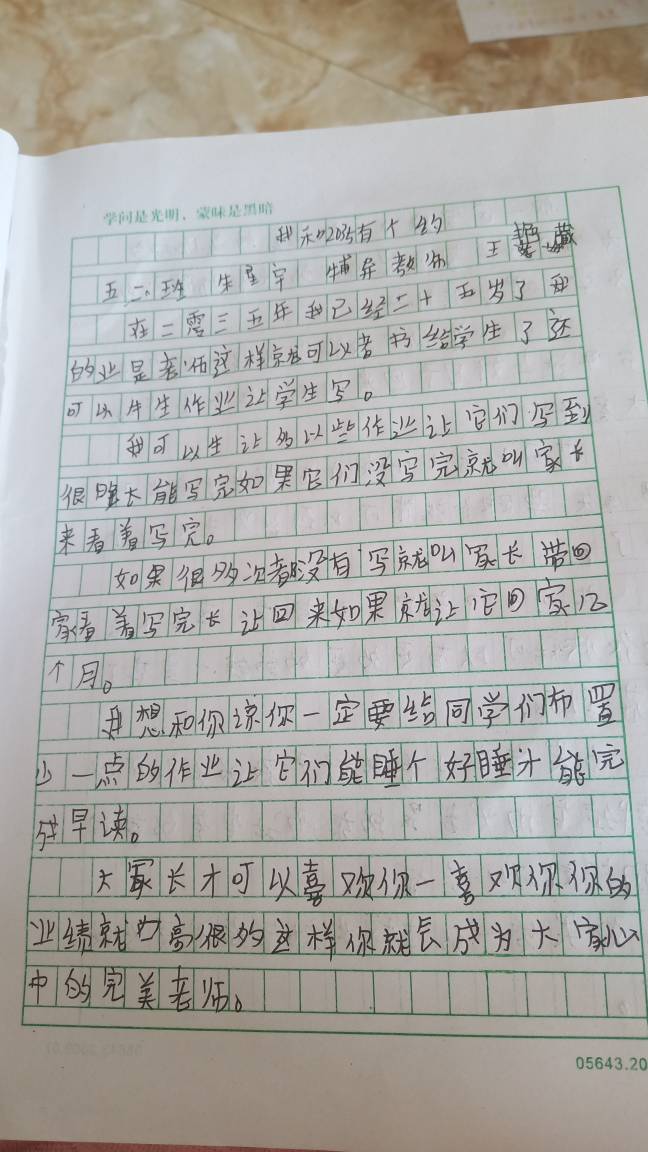 学问是光明，蒙昧是黑暗
我和2035有个约
五二班 牛星宇 辅导教师 王
在二零三五年我已经二十五岁了我
的业是老师这样就可以者书给学生了还
可以牛生作业让学生写。
我可以生让多以些作业让它们写到
很晚长能写完如果它们没写完就叫家长
来看着写完。
如果很多次者没有写就叫家长带回
家看着写完长让回来如果就让它回家几
个月。
我想和你谅你一定要给同学们布置
少一点的作业让它们能睡个好睡汁能完
成早读。
大家长才可以喜欢你一喜欢你你的
业绩就高很的这样你就长成为大家心
中的完美老师。
05643.20